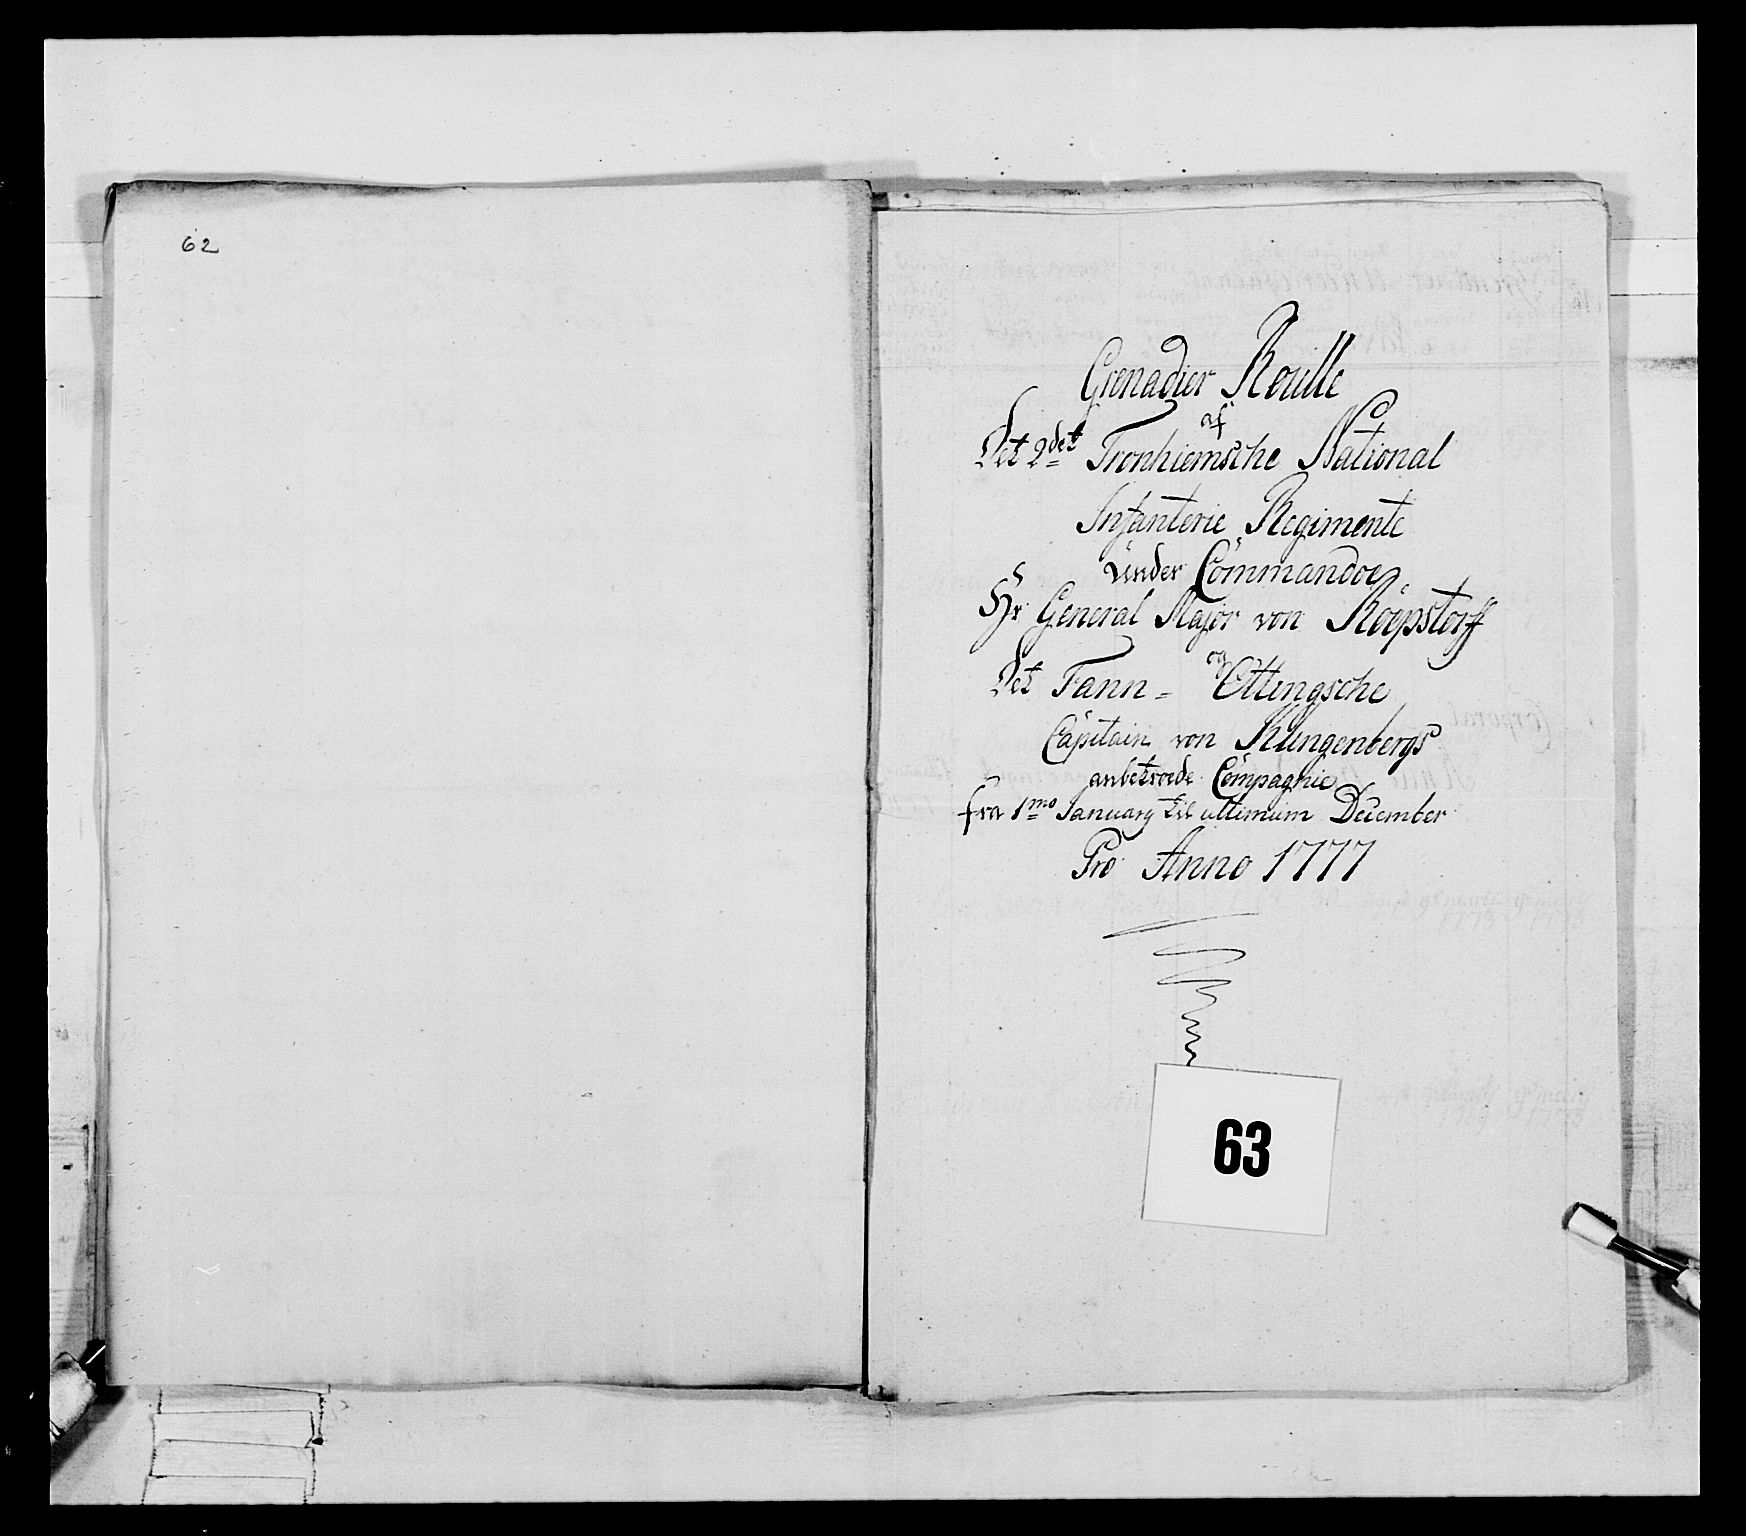 62
Grenadier Roulle
af
Det 2det Tronhiemsche National
Infanterie Regimente
under Commandoe
Hr General Major von Röepstorff
Det Tann- og Ottingsche
Capitain von Klingenbergs
anbetroede Compagnie
fra 1mo January til ultimum December
Pro Anno 1777
63